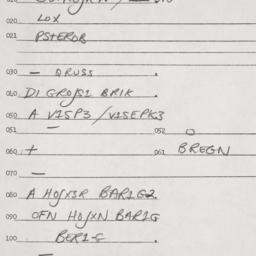 020 LOX
021 PSTEROB
030 — QRUSS .
040 DI GROJS1 BRIK .
050 A V1SP3 / V1SEPK3
051 — 052 O
060 + 061 BREGN
070 —
080 A HO/X3R BAR1G2
090 OFN HO/XN BAR1G
100 BER1-G .
—